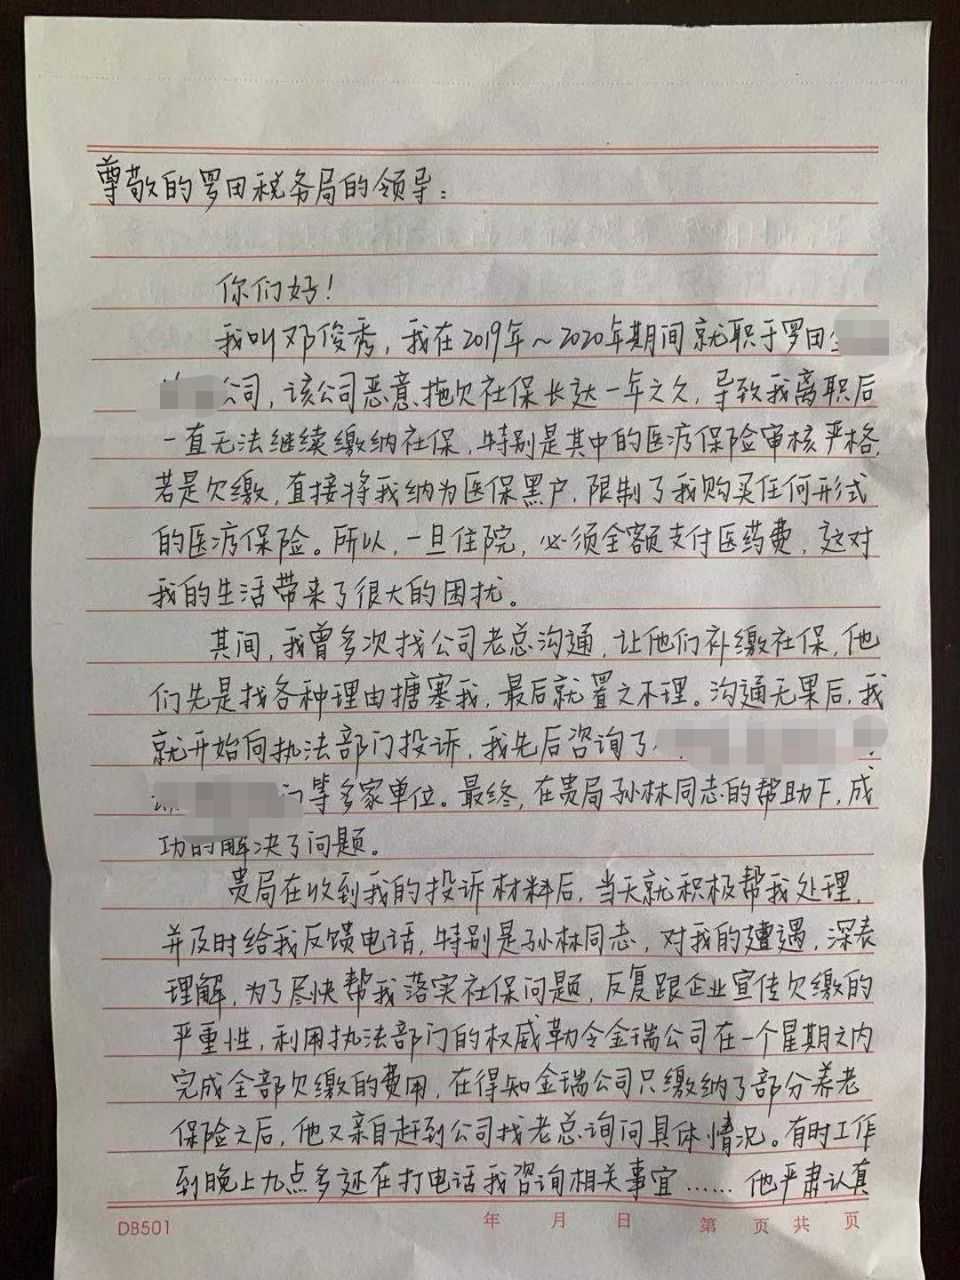 尊敬的罗田税务局的领导：
你们好！
我叫邓俊秀，我在2019年～2020年期间就职于罗田
公司，该公司恶意拖欠社保长达一年之久，导致我离职后
一直无法继续缴纳社保，特别是其中的医疗保险审核严格，
若是欠缴，直接将我纳为医保黑户，限制了我购买任何形式
的医疗保险。所以，一旦住院，必须全额支付医药费，这对
我的生活带来了很大的困扰。
其间，我曾多次找公司老总沟通，让他们补缴社保，他
们先是找各种理由搪塞我，最后就置之不理。沟通无果后，我
就开始向执法部门投诉，我先后咨询了
门等多家单位。最终，在贵局孙林同志的帮助下，成
功的解决了问题。
贵局在收到我的投诉材料后，当天就积极帮我处理，
并及时给我反馈电话，特别是孙林同志，对我的遭遇，深表
理解，为了尽快帮我落实社保问题，反复跟企业宣传欠缴的
严重性，利用执法部门的权威勒令金瑞公司在一个星期之内
完成全部欠缴的费用，在得知金瑞公司只缴纳了部分养老
保险之后，他又亲自赶到公司找老总询问具体情况。有时工作
到晚上九点多还在打电话我咨询相关事宜……他严肃认真
DB501 年 月 日 第 页 共 页